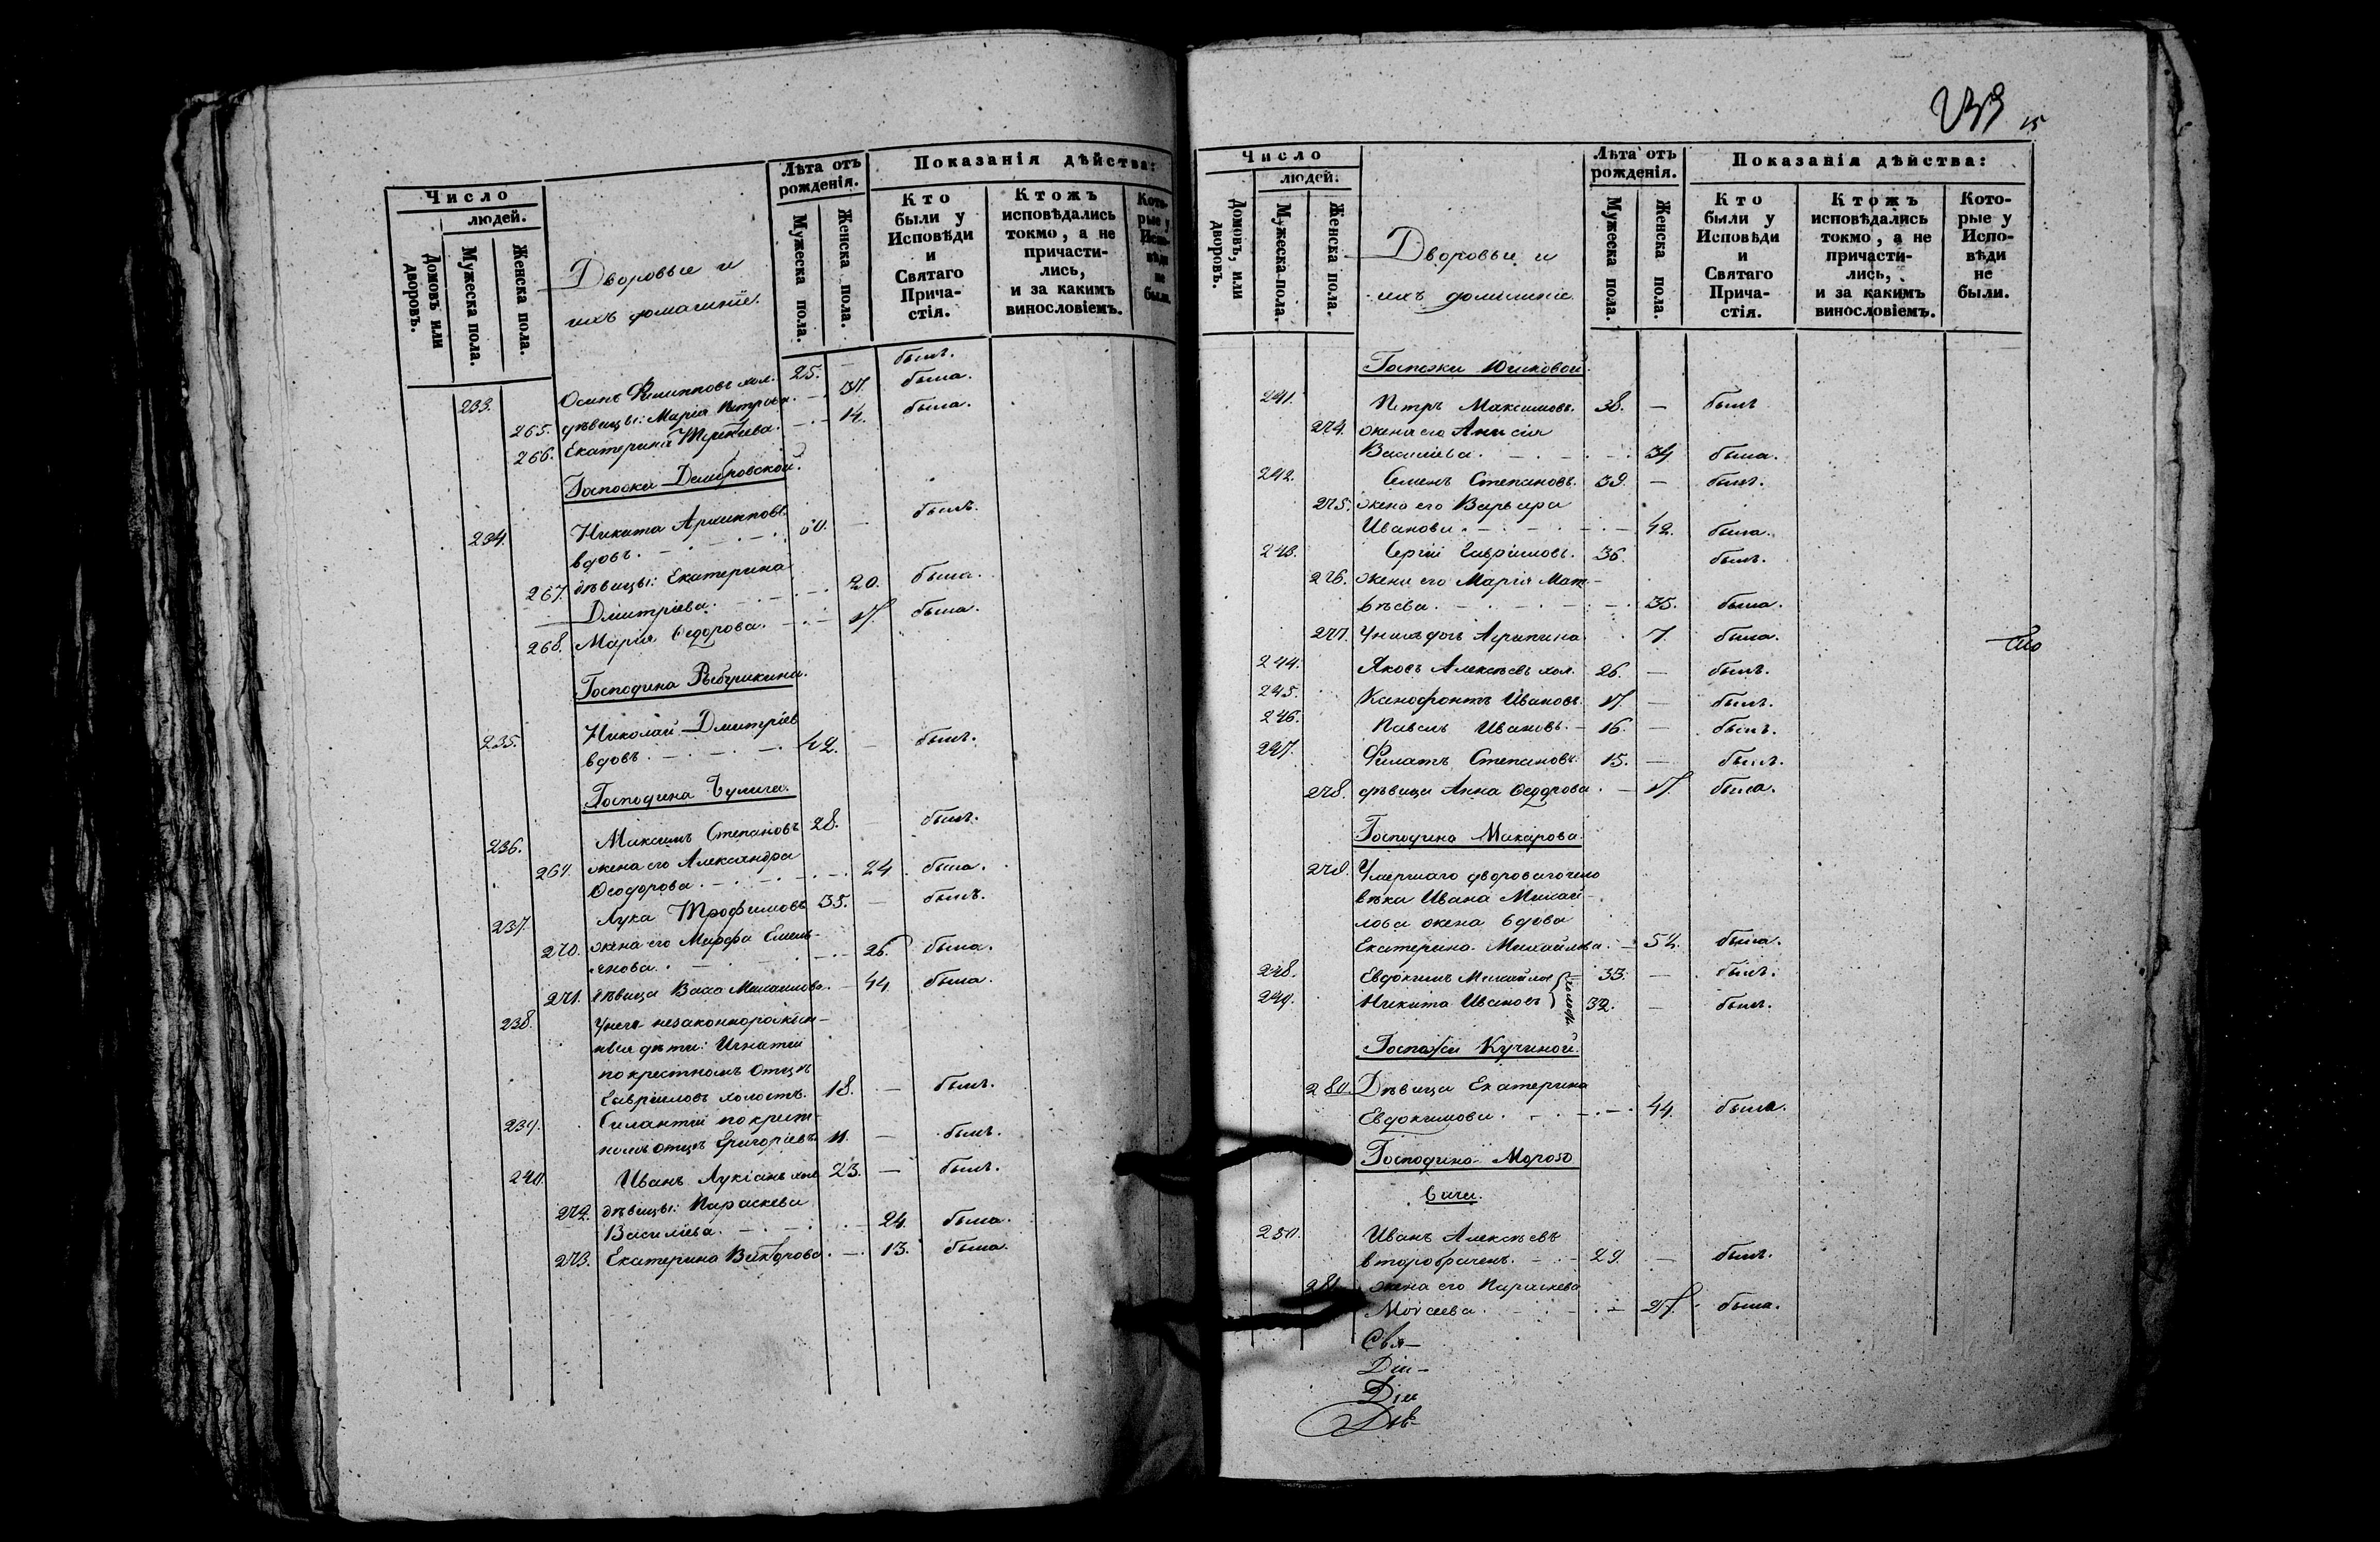 Число
людей.
Домовъ или дворовъ.
Мужеска пола.
Женска пола.
Дворовые и
ихъ домашніе.
Лѣта отъ рожденія.
Мужеска пола.
Женска пола.
Показанія дѣйства:
Кто были у Исповѣди и Святаго Прича-стія.
Ктожъ исповѣдались токмо, а не причасти-лись, и за какимъ винословіемъ.
Кото-рые у Испо-вѣди не были.
233. Осипъ Филипповъ хол. 25. — былъ.
265. дѣвицы: Марія Петрова. — 37. была.
266. Екатерина — 14. была.
Госпожи Домбровской.
234. Никита Архипповъ
вдовъ. — 60. — былъ.
267. дѣвицы: Екатерина
Дмитріева. — 20. была.
268. Марія Ѳедорова. — 17. была.
Господина Рябушкина.
235. Николай Дмитріев
вдовъ. — 42. — былъ.
Господина Булича.
236. Максимъ Степановъ 28. — былъ.
269. жена его Александра
Ѳеодорова. — 24. была.
237. Лука Трофимовъ 35. — былъ.
270. жена его Марфа Емель-
янова. — 26. была.
271. дѣвица Васса Максимова. — 44. была.
238. У нея незаконнорожден-
ныя дѣти: Игнатій
по крестномъ отцѣ
Гавриловъ холостъ. 18. — былъ.
239. Силантій по крест-
номъ отцѣ Григорьевъ 11. — былъ.
240. Иванъ Лукіанъ хол 23. — былъ.
272. дѣвицы: Параскева
Васильева. — 24. была.
273. Екатерина Викторова. — 13. была.
239
15
Число
людей.
Домовъ, или дворовъ.
Мужеска пола.
Женска пола.
Дворовые и
ихъ домашніе.
Лѣта отъ рожденія.
Мужеска пола.
Женска пола.
Показанія дѣйства:
Кто были у Исповѣди и Святаго Прича-стія.
Ктожъ исповѣдались токмо, а не причасти-лись, и за какимъ винословіемъ.
Кото-рые у Испо-вѣди не были.
Госпожи Юшковой.
241. Петръ Максимовъ. 38. — былъ
274. жена его Анисія
Васильева. — 34. была.
242. Семенъ Степановъ. 39. — былъ.
275. жена его Варвара
Иванова. — 42. была.
243. Сергій Гавриловъ. 36. былъ.
276. жена его Марія Мат-
вѣева. — 35. была.
277. У нихъ дочь Агрипина 7. была.
244. Яковъ Алексѣевъ хол. 26. — былъ.
245. Ксенофонтъ Ивановъ. 17. — былъ.
246. Павелъ Ивановъ. — 16. — былъ.
247. Филатъ Степановъ. 15. — былъ.
278. дѣвица Анна Ѳедорова. — 17. была.
Господина Макарова.
279. Умершаго двороваго чело
вѣка Ивана Михай-
лова жена вдова
Екатерина Михайлова. — 54. была.
248. Евдокимъ Михайлов 33. — былъ.
249. Никита Ивановъ 32. — былъ.
Госпожи Кучиной.
280. Дѣвица Екатерина
Евдокимова. — 44. была.
Господина Морозо
вича.
250. Иванъ Алексѣевъ
второбраченъ. — 29. — былъ.
281. жена его Параскева
Моѵсеева. — 27. была.
Свя-
Діа-
Діа